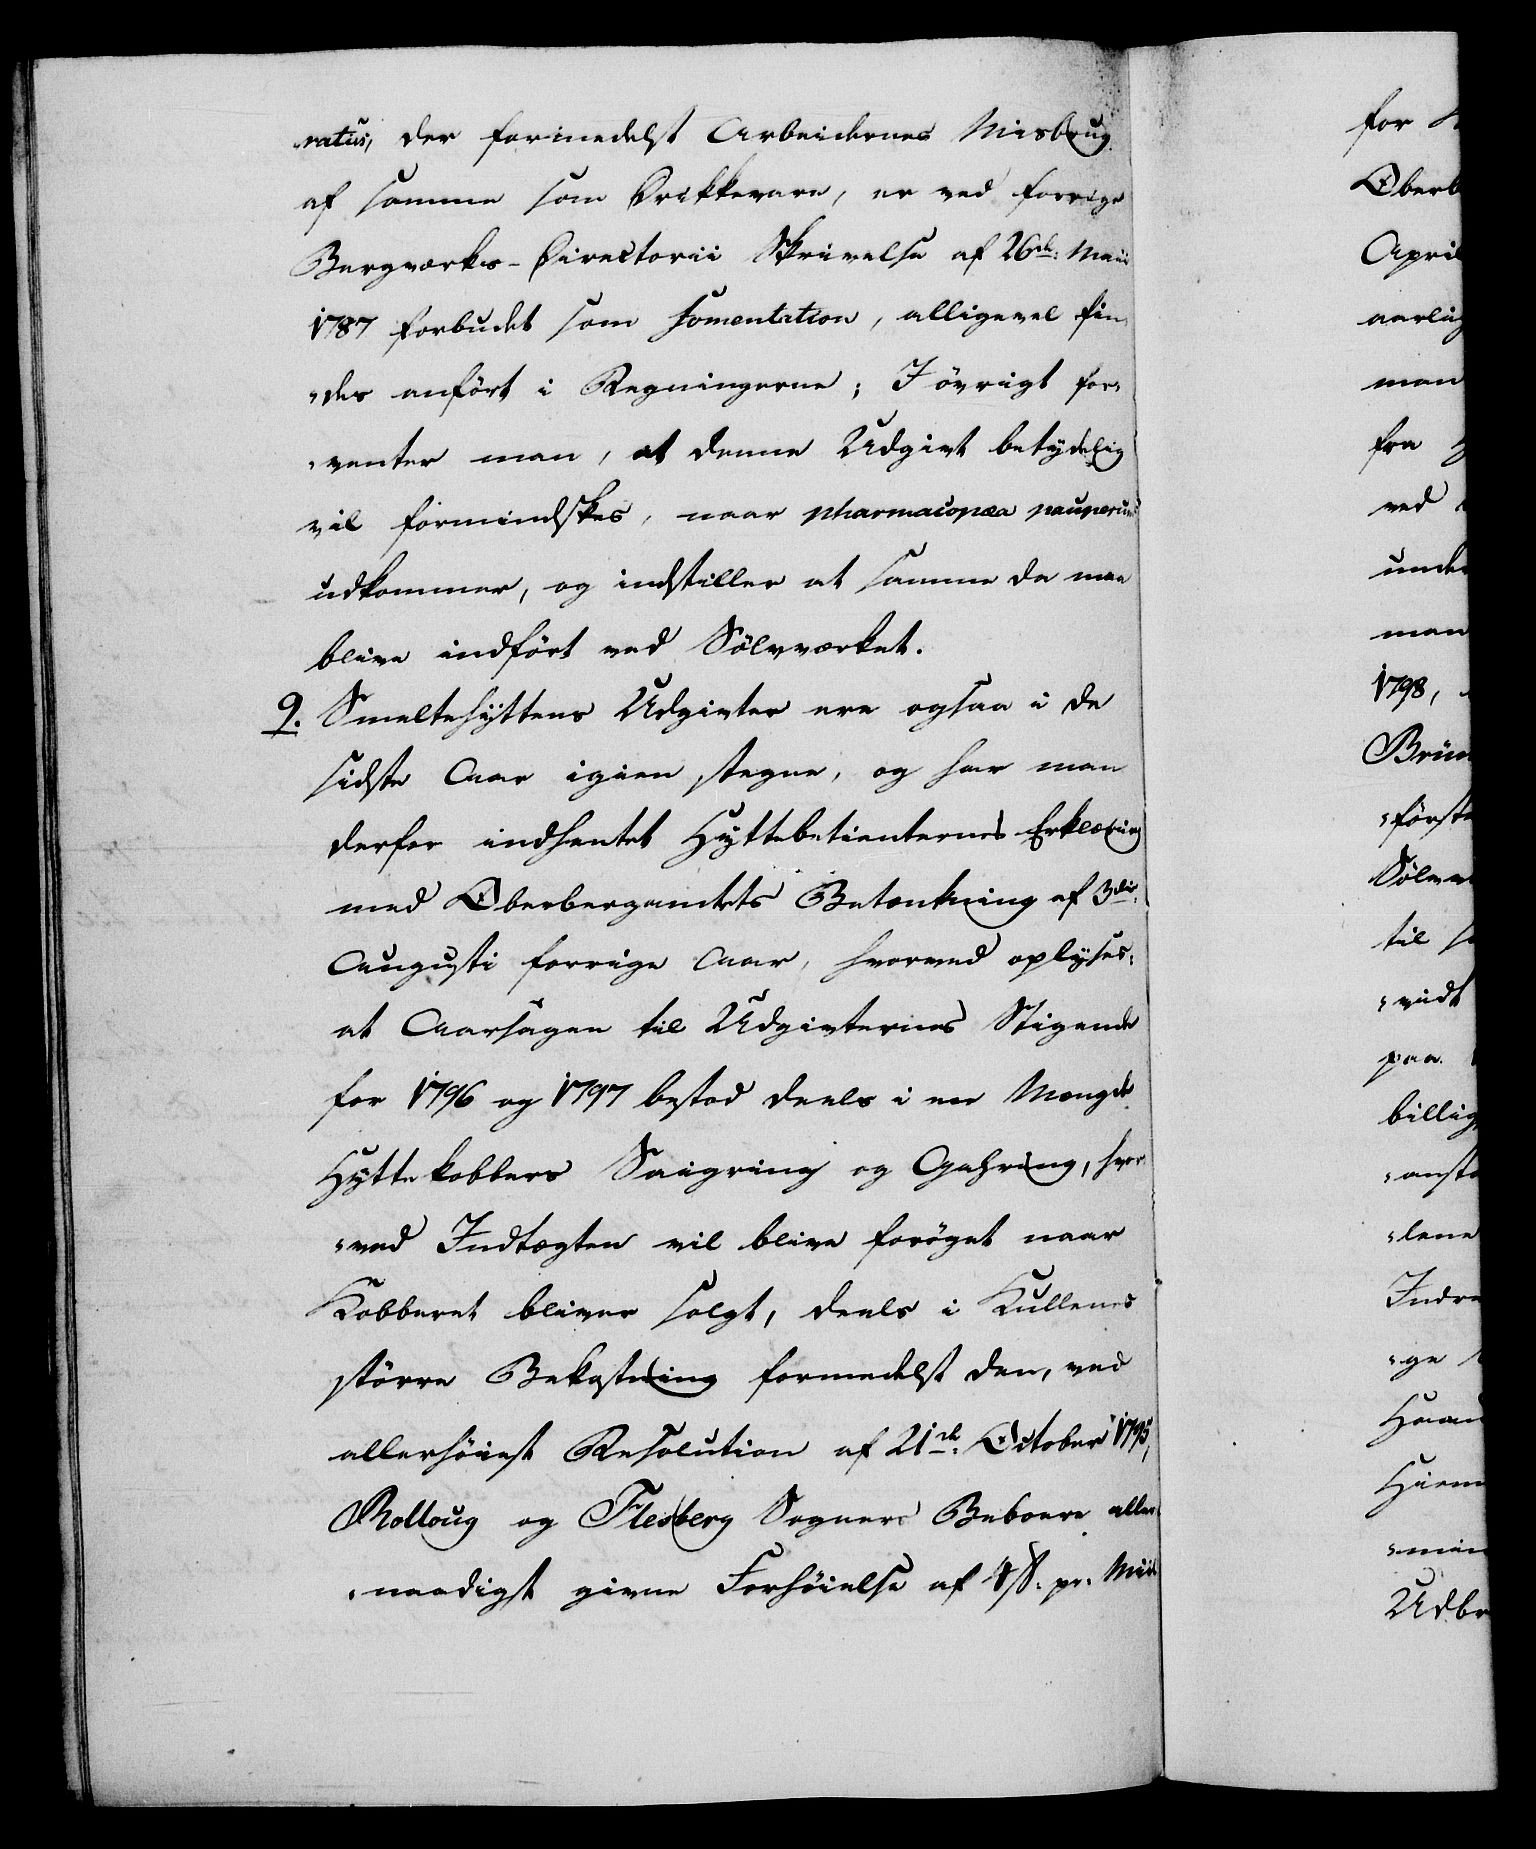 ratus, der formedelst Arbeidernes Misbrug
af samme som Drikkevare, er ved forrige
Bergværks-Directorii Skrivelse af 26de: Maii
1787 forbudet som fomentation, alligevel fin-
"des anført i Regningerne; I øvrigt for-
"venter man, at denne Udgivt betydelig
vil formindskes, naar pharmacopæa pauperum
udkommer, og indstiller at samme da maa
blive indført ved Sölvværket.
9. Smeltehyttens Udgivter ere ogsaa i de
sidste Aar igien stegne, og har man
derfor indhentet Hyttebetienternes Erklæring
med Oberbergamtets Betænkning af 3die
Augusti forrige Aar, hvorved oplyses:
at Aarsagen til Udgivternes Stigende
for 1796 og 1797 bestod deels i en Mængde
Hyttekobbers Saigring og Gahring, hvor
"ved Indtægten vil blive forøget naar
Kobberet bliver solgt, deels i Kullenes
større Bekostning formedelst den, ved
allerhöiest Resolution af 21de: October 1795,
Rolloug og Flesberg Sogners Beboere aller-
"naadigst givne Forhöielse af 4 s. pr. Miil
for
Oberb
April
aarlig
man
fra
ved
unde
man
1798,
Brün
"förste
Sölvv
til
"vidt
paa
billig
"ansta
"lene
Indre
"ge
Haand
Hiem
"min
Udbr